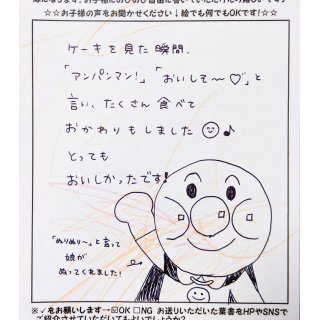 ☆☆お子様の声をお聞かせください↓絵でも何でもOKです!☆☆
ケーキを見た瞬間、
「アンパンマン!」「おいしそ～♡」と
言い、たくさん食べて
おかわりもしました☺♪
とっても
おいしかったです!
「ぬりぬり～」と言って
娘が
ぬってくれました!
※✓をお願いします→☑OK □NG お送りいただいた葉書をHPやSNSで
ご紹介させていただいてもよいでしょうか?